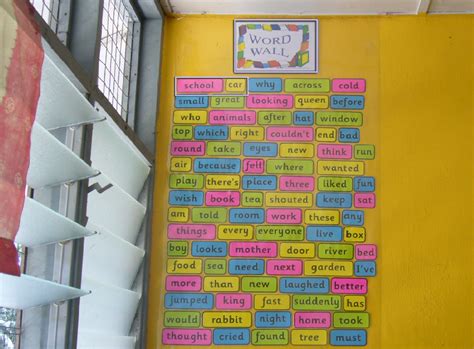 WORD
WALL
school car why across cold
small great looking queen before
who animals after hat window
top which right couldn't end bad
round take eyes new think run
air because felt where wanted
play there's place three liked fun
wish book tea shouted keep sat
am told room work these any
things every everyone live box
boy looks mother door river bed
food sea need next garden I've
more than new laughed better
jumped king fast suddenly has
would rabbit night home took
thought cried found tree must